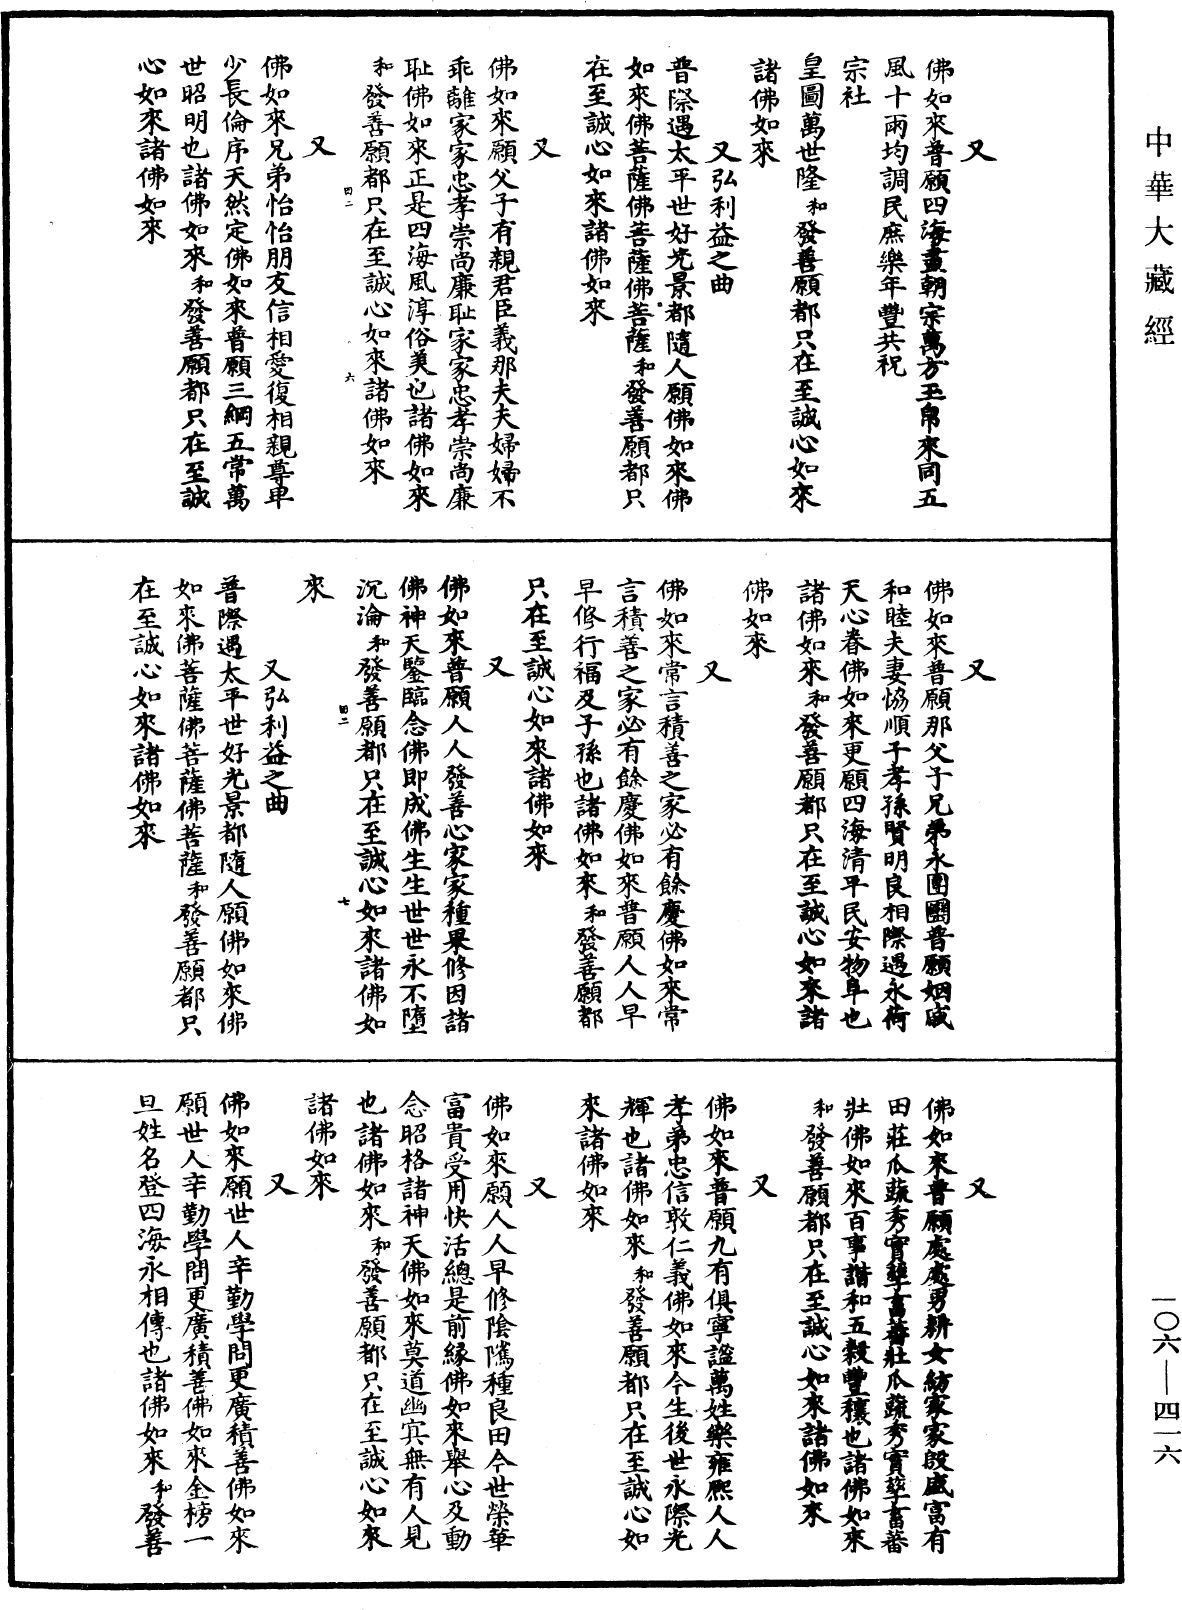 中華大藏經
又
佛如來普願四海盡朝宗萬方玉帛來同五
風十雨均調民庶樂年豐共祝
宗社
皇圖萬世隆和發善願都只在至誠心如來
諸佛如來
又弘利益之曲
普際遇太平世好光景都隨人願佛如來佛
如來佛菩薩佛菩薩佛菩薩和發善願都只
在至誠心如來諸佛如來
又
佛如來願父子有親君臣義那夫夫婦婦不
乖離家家忠孝崇尚廉耻家家忠孝崇尚廉
耻佛如來正是四海風淳俗美也諸佛如來
和發善願都只在至誠心如來諸佛如來
四二 六
又
佛如來兄弟怡怡朋友信相愛復相親尊卑
少長倫序天然定佛如來普願三綱五常萬
世昭明也諸佛如來和發善願都只在至誠
心如來諸佛如來
又
佛如來普願那父子兄弟永團圞普願姻戚
和睦夫妻恊順子孝孫賢明良相際遇永荷
天心眷佛如來更願四海清平民安物阜也
諸佛如來和發善願都只在至誠心如來諸
佛如來
又
佛如來常言積善之家必有餘慶佛如來常
言積善之家必有餘慶佛如來普願人人早
早修行福及子孫也諸佛如來和發善願都
只在至誠心如來諸佛如來
又
佛如來普願人人發善心家家種果修因諸
佛神天鑒臨念佛即成佛生生世世永不墮
沉淪和發善願都只在至誠心如來諸佛如
四二 七
來
又弘利益之曲
普際遇太平世好光景都隨人願佛如來佛
如來佛菩薩佛菩薩佛菩薩和發善願都只
在至誠心如來諸佛如來
又
佛如來普願處處男耕女紡家家殷盛富有
田莊瓜蔬秀實孳畜蕃壯瓜蔬秀實孳畜蕃
壯佛如來百事諧和五穀豐穰也諸佛如來
和發善願都只在至誠心如來諸佛如來
又
佛如來普願九有俱寧謐萬姓樂雍熙人人
孝弟忠信敦仁義佛如來今生後世永際光
輝也諸佛如來和發善願都只在至誠心如
來諸佛如來
又
佛如來願人人早修陰隲種良田今世榮華
富貴受用快活總是前緣佛如來舉心及動
念昭格諸神天佛如來莫道幽冥無有人見
也諸佛如來和發善願都只在至誠心如來
諸佛如來
又
佛如來願世人辛勤學問更廣積善佛如來
願世人辛勤學問更廣積善佛如來金榜一
旦姓名登四海永相傳也諸佛如來和發善
一〇六—四一六